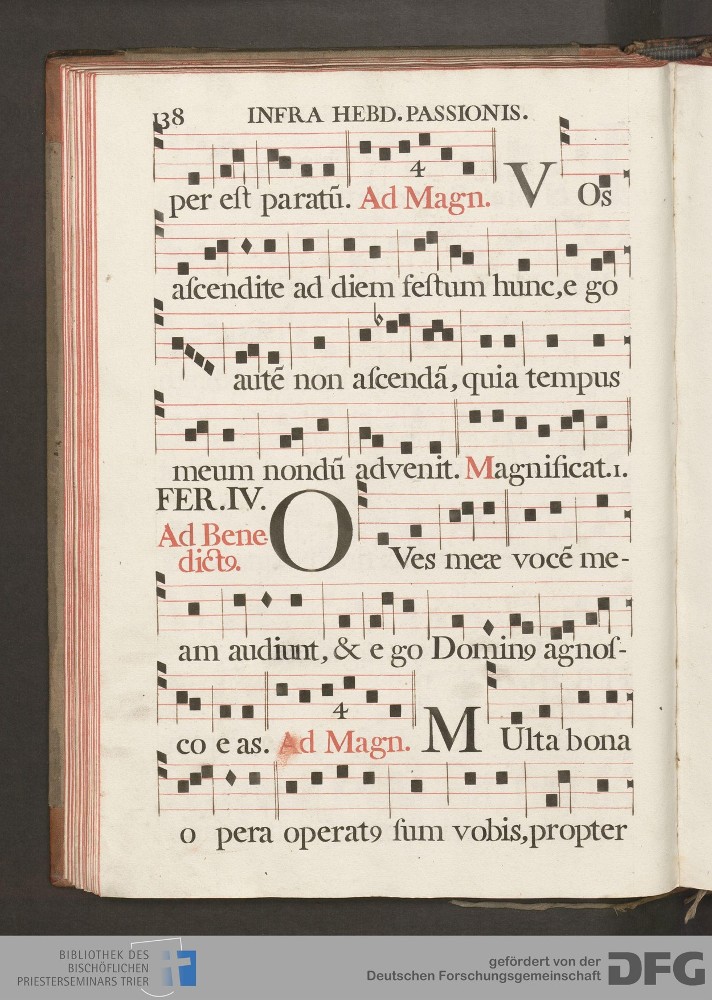 138 INFRA HEBD. PASSIONIS.
4
per eſt paratũ. Ad Magn. VOs
aſcendite ad diem feſtum hunc, e go
autẽ non aſcendã, quia tempus
meum nondũ advenit. Magnificat. 1.
FER. IV.
Ad Bene
dictꝯ.
OVes meæ vocẽ me-
am audiunt, & e go Dominꝯ agnoſ-
4
co e as. Ad Magn. MUlta bona
o pera operatꝯ ſum vobis, propter
BIBLIOTHEK DES
BISCHÖFLICHEN
PRIESTERSEMINARS TRIER
gefördert von der
Deutschen Forschungsgemeinschaft
DFG